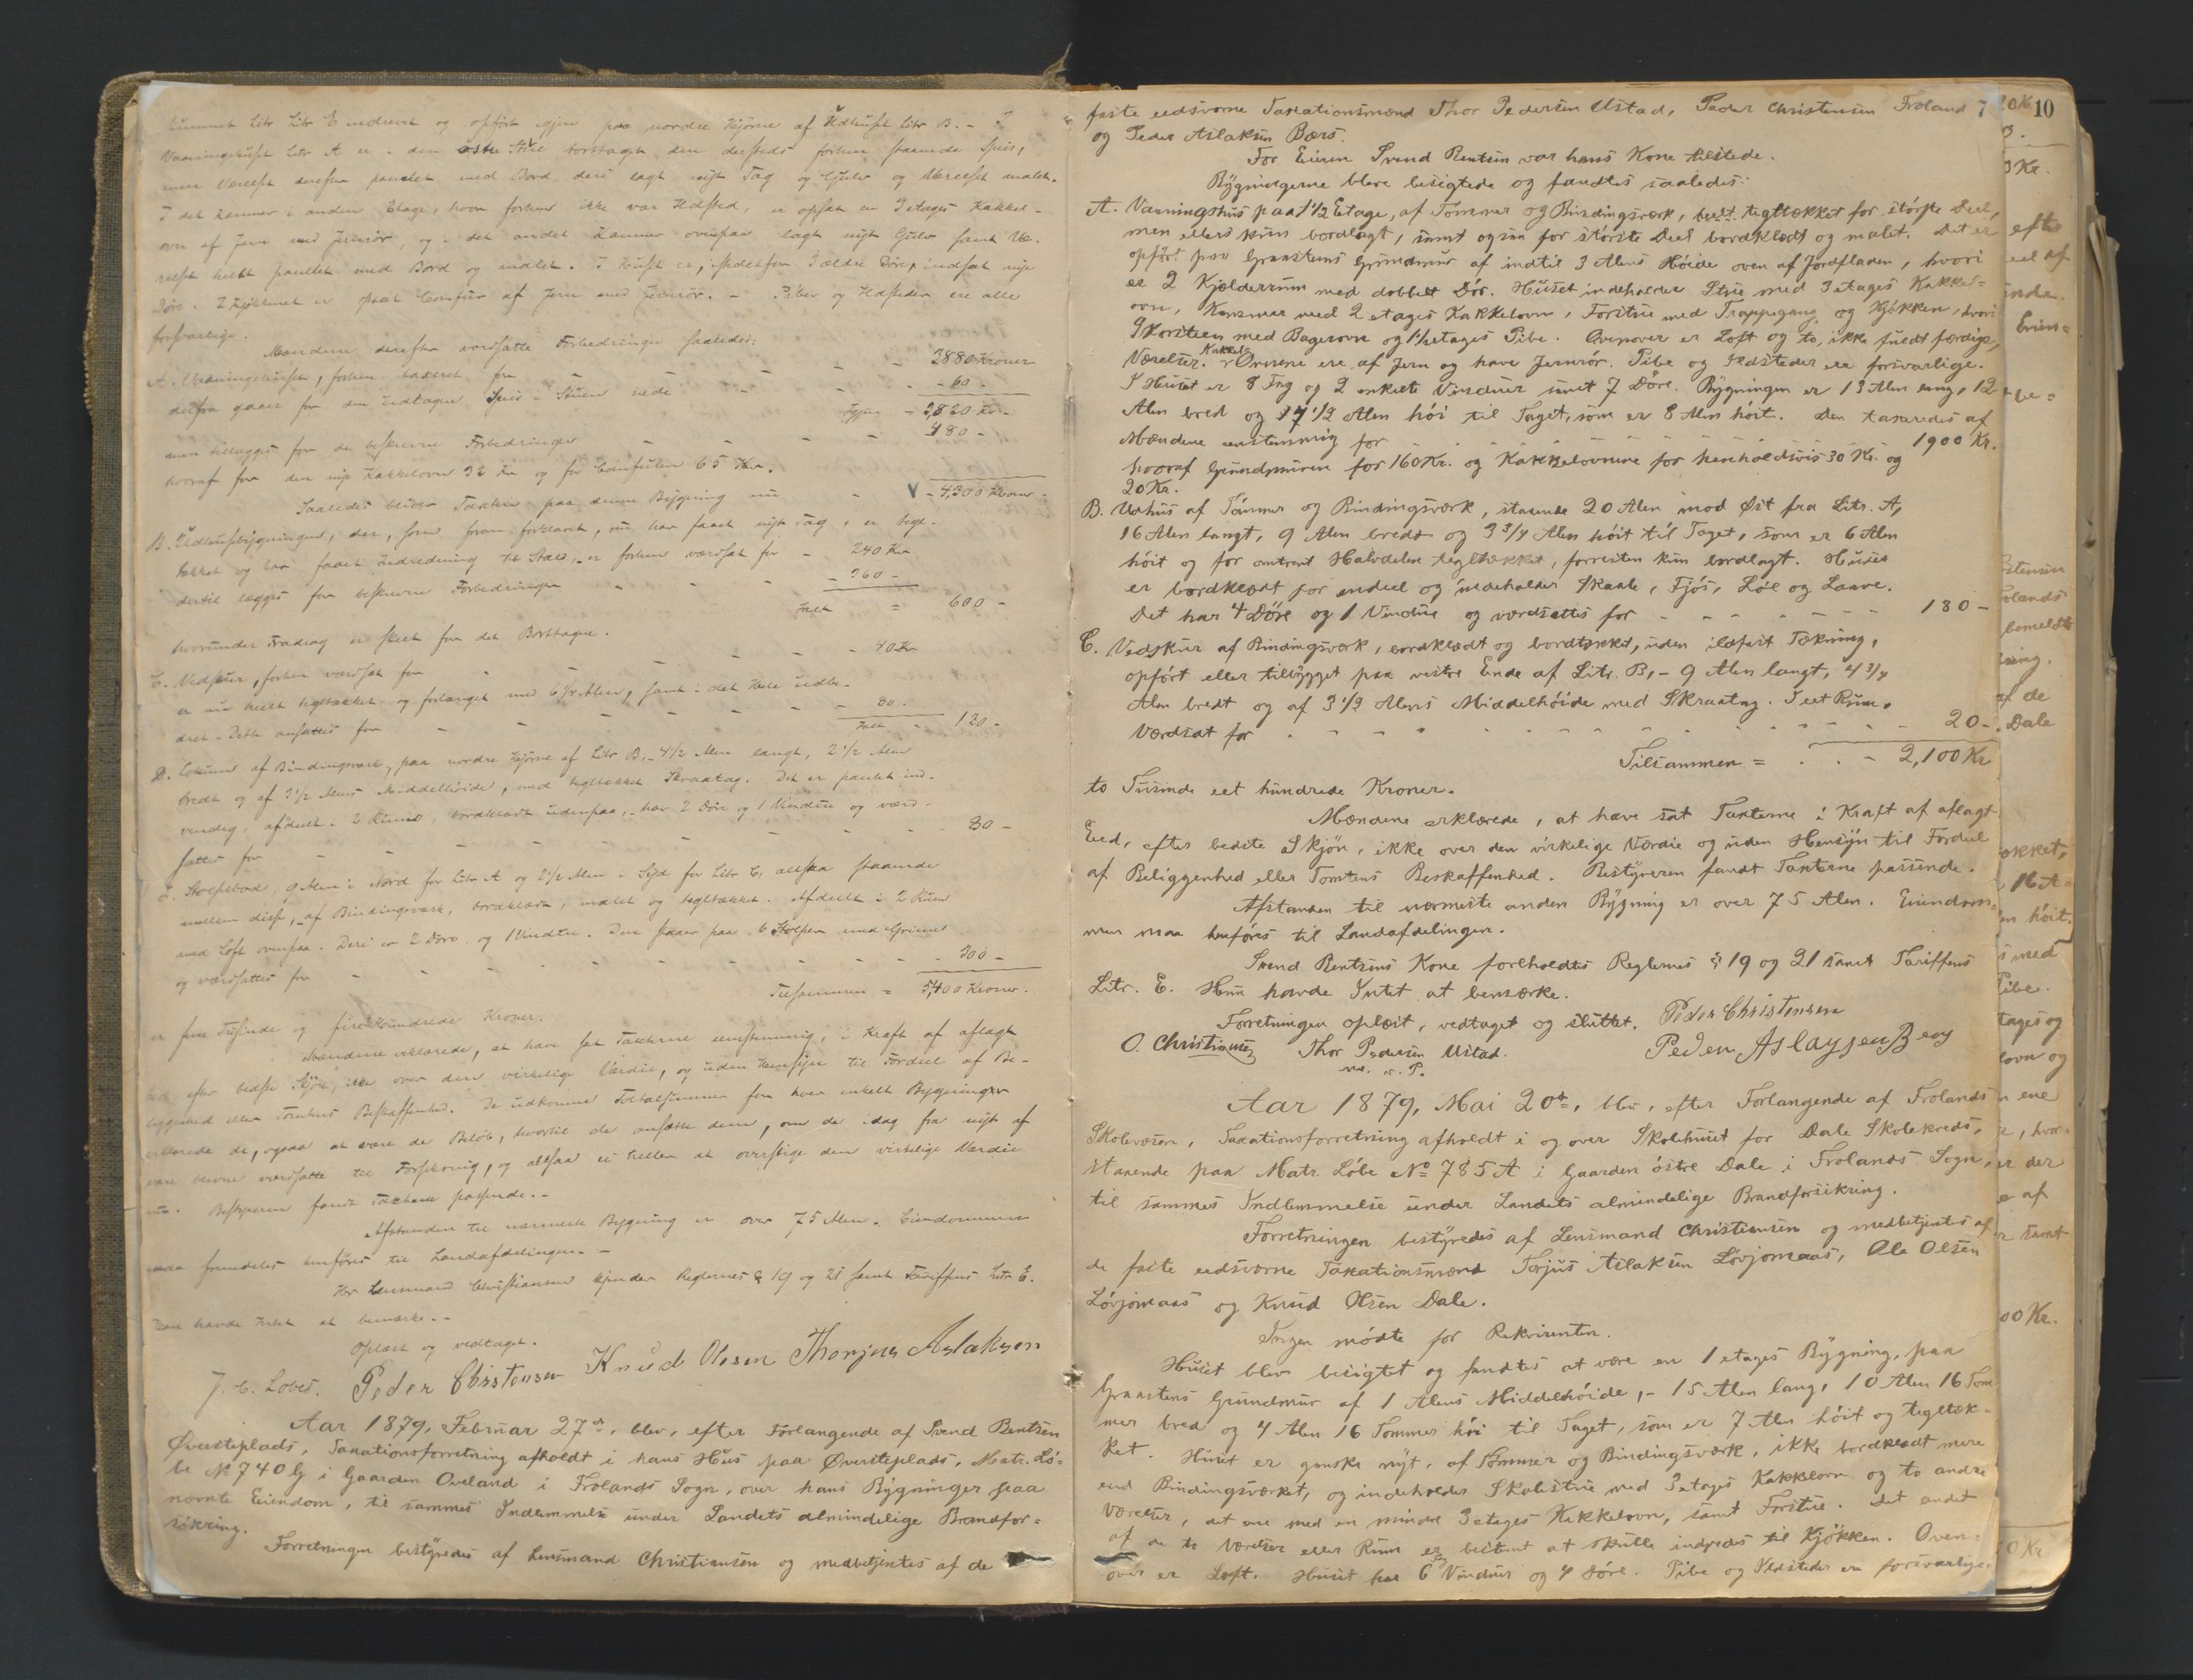 rummet Litr. E nedrevet og opført igjen paa nordre Hjørne af Udhuset Litr B. - I
Vaaningshuset Litr A er i den østre Stue borttaget den dersteds forhen staaende Spis,
men Værelset derefter panelet med Bord, deri lagt nyt Tag og Gulv og Værelset malet.
I det Kammer i anden Etage, hvor forhen ikke var Ildsted, er opsat en 3 etages Kakkel-
ovn af Jern med Jernrör, og i det andet Kammer ovenpaa lagt nyt Gulv samt Væ-
relset heelt panelet med Bord og malet. I Huset er, istedetfor 3 ældre Døre, indsat nye
Døre. I Kjøkkenet er opsat Comfur af Jern med Jernrör. - Piber og Ildsteder ere alle
forsvarlige.
Mændene derefter værdsatte Forbedringer saaledes:
A. Vaaningshuset, forhen taxeret for - - - 3880 Kroner
derfra gaaer for den udtagne Spis i Stuen nede - - - 60 -
Igjen - 3,820 Kr -
men tillægges for de beskrevne Forbedringer - - - 480 -
hvoraf for den nye Kakkelovn 32 Kr og for Comfuren 65 Kr.
Saaledes bliver Taxten paa denne Bygning nu - V - 4,300 Kroner -
B. Udhusbygningen, der, som foran forklaret, nu har faaet nyt Tag, er tegl-
tækket og har faaet Indredning til Stald, er forhen værdsat for - 240 Kr
dertil lægges for beskrevne Forbedringer - - - 360 -
Ialt = 600 -
hvorunder Fradrag er skeet for det Borttagne.
C. Vedskur, forhen værdsat for - - - 40 Kr
er nu heelt tegltækket og forlænget med 6 1/2 Alen, samt i det Hele udbe-
dret. Dette ansættes for - - - 80 -
Ialt - 120 -
D. Lokum af Bindingsværk, paa nordre Hjørne af Litr B, - 4 1/2 Alen langt, 2 1/2 Alen
bredt og af 3 1/2 Alens Middelhöide, med tegltækket Skraatag. Det er panelet ind-
vendig, afdeelt i 2 Rum, bordklædt udenpaa, - har 2 Döre og 1 Vindue og værd-
sattes for - - - 80 -
E. Stolpebod, 9 Alen i Nord for Litr A og 2 1/2 Alen i Syd for Litr C, altsaa staaende
mellem disse, - af Bindingsværk, bordklædt, malet og tegltækket. Afdeelt i 2 Rum
med Loft ovenpaa. Deri er 2 Döre og 1 Vindue. Den staaer paa 6 Stolper med Grime
og værdsattes for - - - 300 -
Tilsammen = 5,400 Kroner.
er fem Tusinde og fire Hundrede Kroner.
Mændene erklærede, at have sat Taxterne eenstemmig, i Kraft af aflagt
Eed, efter bedste Skjön, ikke over den virkelige Værdie, og uden Hensyn til Fordeel af Be-
liggenhed eller Tomtens Beskaffenhed. De udkomne Totalsummer for hver enkelt Bygninger
erklærede de, ogsaa at være de Beløb, hvortil de ansætte dem, om de idag fra nyt af
vare blevne værdsatte til Forsikring, og altsaa ei heller at overstige den virkelige Værdie
nu. Bestyreren fandt Taxterne passende. -
Afstanden til nærmeste Bygning er over 75 Alen. Eiendommen
maa fremdeles henføres til Landafdelingen. -
Hr Lensmand Christiansen kjender Reglernes § 19 og 21 samt Tariffens Litr E.
Han havde Intet at bemærke. -
Oplæst og vedtaget.
J. C. Lover. Peder Christensen Knud Olesen Thorjus Aslaksen
Aar 1879, Februar 27de, blev, efter Forlangende af Svend Bentsen
Øvensteplads, Taxationsforretning afholdt i hans Hus paa Øvensteplads, Matr. Lö-
be No 740 b i Gaarden Oveland i Frolands Sogn, over hans Bygninger paa
nævnte Eiendom, til sammes Indlemmelse under Landets almindelige Brandfor-
sikring.
Forretningen bestyredes af Lensmand Christiansen og medbetjentes af de
faste eedsvorne Taxationsmænd Thor Pedersen Ustad, Peder Christensen Froland 7
og Peder Aslaksen Bærs.
For Eieren Svend Bentsen var hans Kone tilstede.
Bÿgningerne bleve besigtede og fandtes saaledes:
A. Vaaningshus paa 1 1/2 Etage, af Tömmer og Bindingsværk, heelt tegltækket for störste Deel,
men ellers kun bordlagt, samt ogsaa for störste Deel bordklædt og malet. Det er
opfört paa Graasteins Grundmur af indtil 3 Alens Höide oven af Jordfladen, hvori
er 2 Kjælderrum med dobbelt Dör. Huset indeholder Stue med 3 etages Kakkel=
ovn, Kammer med 2 etages Kakkelovn, Forstue med Trappegang og Kjökken, hvori
Skorsteen med Bagerovn og 1 1/2 etages Pibe. Ovenover er Loft og to, ikke fuldt færdige,
Værelser. Kakkel-Ovnene ere af Jern og have Jernrör. Pibe og Ildsteder ere forsvarlige.
I Huset er 8 Fag og 2 enkelte Vinduer samt 7 Döre. Bygningen er 13 Alen lang, 12
Alen bred og 7 1/2 Alen höi til Taget, som er 8 Alen höit. Den taxeredes af
Mændene eenstemmig for - - - 1900 Kr.
hvoraf Grundmuren for 160 Kr. og Kakkelovnene for henholdsvis 30 Kr. og
20 Kr.
B. Udhus af Tömmer og Bindingsværk, staaende 20 Alen mod Øst fra Litr. A,
16 Alen langt, 9 Alen bredt og 3 3/4 Alen höit til Taget, som er 6 Alen
höit og for omtrent Halvdelen tegltækket, forresten kun bordlagt. Huset
er bordklædt for endeel og indeholder Skaale, Fjös, Löe og Laave.
Det har 4 Döre og 1 Vindue og værdsattes for - - - 180 -
C. Vedskur af Bindingsværk, bordklædt og bordtækket, uden ildfast Tækning,
opfört eller tilbÿgget paa vestre Ende af Litr. B, - 9 Alen langt, 4 3/4
Alen bredt og af 3 1/2 Alens Middelhöide med Skraatag. I eet Rum.
Værdsat for - - - 20 -
Tilsammen = . . - 2,100 Kr
to Tusinde eet hundrede Kroner.
Mændene erklærede, at have sat Taxterne i Kraft af aflagt
Eed, efter bedste Skjön, ikke over den virkelige Værdie og uden Hensÿn til Fordeel
af Beliggenhed eller Tomtens Beskaffenhed. Bestÿreren fandt Taxterne passende.
Afstanden til nærmeste anden Bÿgning er over 75 Alen. Eiendom-
men maa henföres til Landafdelingen.
Svend Bentsens Kone foreholdtes Reglernes § 19 og 21 samt Tariffens
Litr. E. Hun havde Intet at bemærke.
Forretningen oplæst, vedtaget og sluttet. Peder Christensen
O. Christiansen Thor Pedersen Ustad. Peder Aslaysen Bers
m. p. P.
Aar 1879, Mai 20de, blev, efter Forlangende af Frolands
Skolevæsen, Taxationsforretning afholdt i og over Skolehuset for Dale Skolekreds,
staaende paa Matr. Löbe No 785 A i Gaarden östre Dale i Frolands Sogn,
til sammes Indlemmelse under Landets almindelige Brandforsikring.
Forretningen bestÿredes af Lensmand Christiansen og medbetjentes af
de faste eedsvorne Taxationsmænd Torjus Aslaksen Lövjomaas, Ole Olsen
Lövjomaas og Knud Olsen Dale.
Ingen mödte for Rekvirenten.
Huset blev besigtet og fandtes at være en 1 etages Bÿgning, paa
Graastens Grundmur af 1 Alens Middelhöide, - 15 Alen lang, 10 Alen 16 Tom-
mer bred og 4 Alen 16 Tommer höi til Taget, som er 7 Alen höit og tegltæk-
ket. Huset er ganske nyt, af Tömmer og Bindingsværk, ikke bordklædt mere
end Bindingsværket, og indeholder Skolestue med 3 etages Kakkelovn og to andre
Værelser, det ene med en mindre 3 etages Kakkelovn, samt Forstue. Det andet
af de to Værelser eller Rum er bestemt at skulle indredes til Kjökken. Oven-
over er Loft. Huset har 6 Fag Vinduer og 4 Döre. Pibe og Ildsteder ere forsvarlige.
10